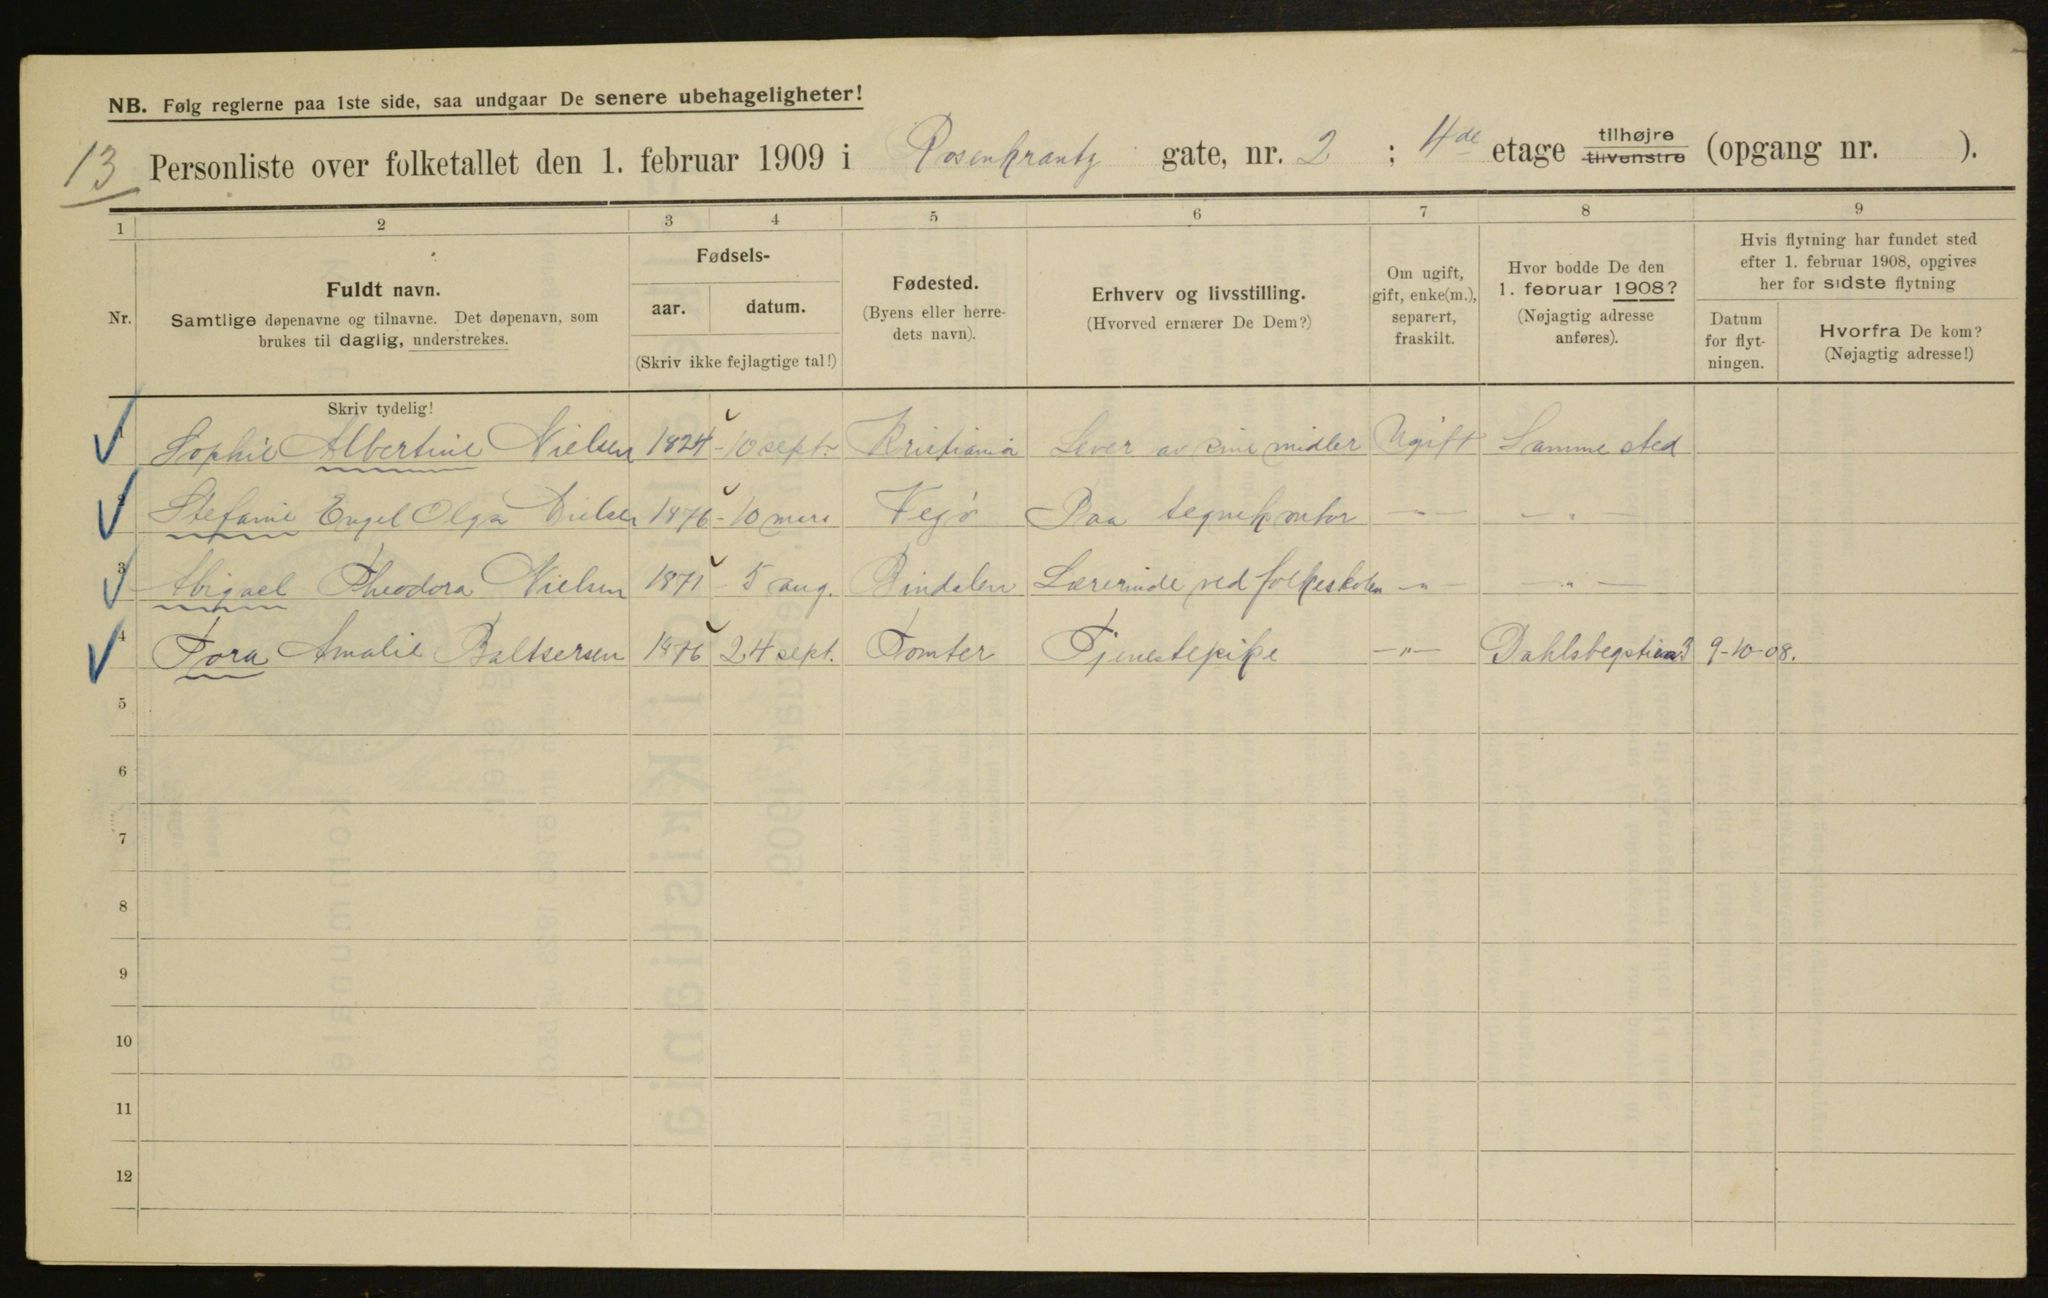 NB. Følg reglerne paa 1ste side, saa undgaar De senere ubehageligheter!
13 Personliste over folketallet den 1. februar 1909 i Rosenkrantz gate, nr. 2 ; 4de etage tilhøjre tilvenstre (opgang nr. ).
1 2 3 4 5 6 7 8 9
Nr.
Fuldt navn.
Samtlige døpenavne og tilnavne. Det døpenavn, som
brukes til daglig, understrekes.
Fødsels-
aar. datum.
(Skriv ikke fejlagtige tal!)
Fødested.
(Byens eller herre-
dets navn).
Erhverv og livsstilling.
(Hvorved ernærer De Dem?)
Om ugift,
gift, enke(m.),
separert,
fraskilt.
Hvor bodde De den
1. februar 1908?
(Nøjagtig adresse
anføres).
Hvis flytning har fundet sted
efter 1. februar 1908, opgives
her for sidste flytning
Datum
for flyt-
ningen.
Hvorfra De kom?
(Nøjagtig adresse!)
Skriv tydelig!
1 Sophie Albertine Nielsen 1824 - 10 sept. Kristiania Lever av sine midler Ugift Samme sted
2 Stefanie Engel Olga Nielsen 1876 - 10 mars Vegø Paa tegnekontor -"- -"-
3 Abigael Theodora Nielsen 1871 - 5 aug. Bindalen Lærerinde ved folkeskolen -"- -"-
4 Tora Amalie Baltsersen 1876 24 sept. Tomter Tjenestepike -"- Dahlsbegstien 3 9-10-08.
5
6
7
8
9
10
11
12